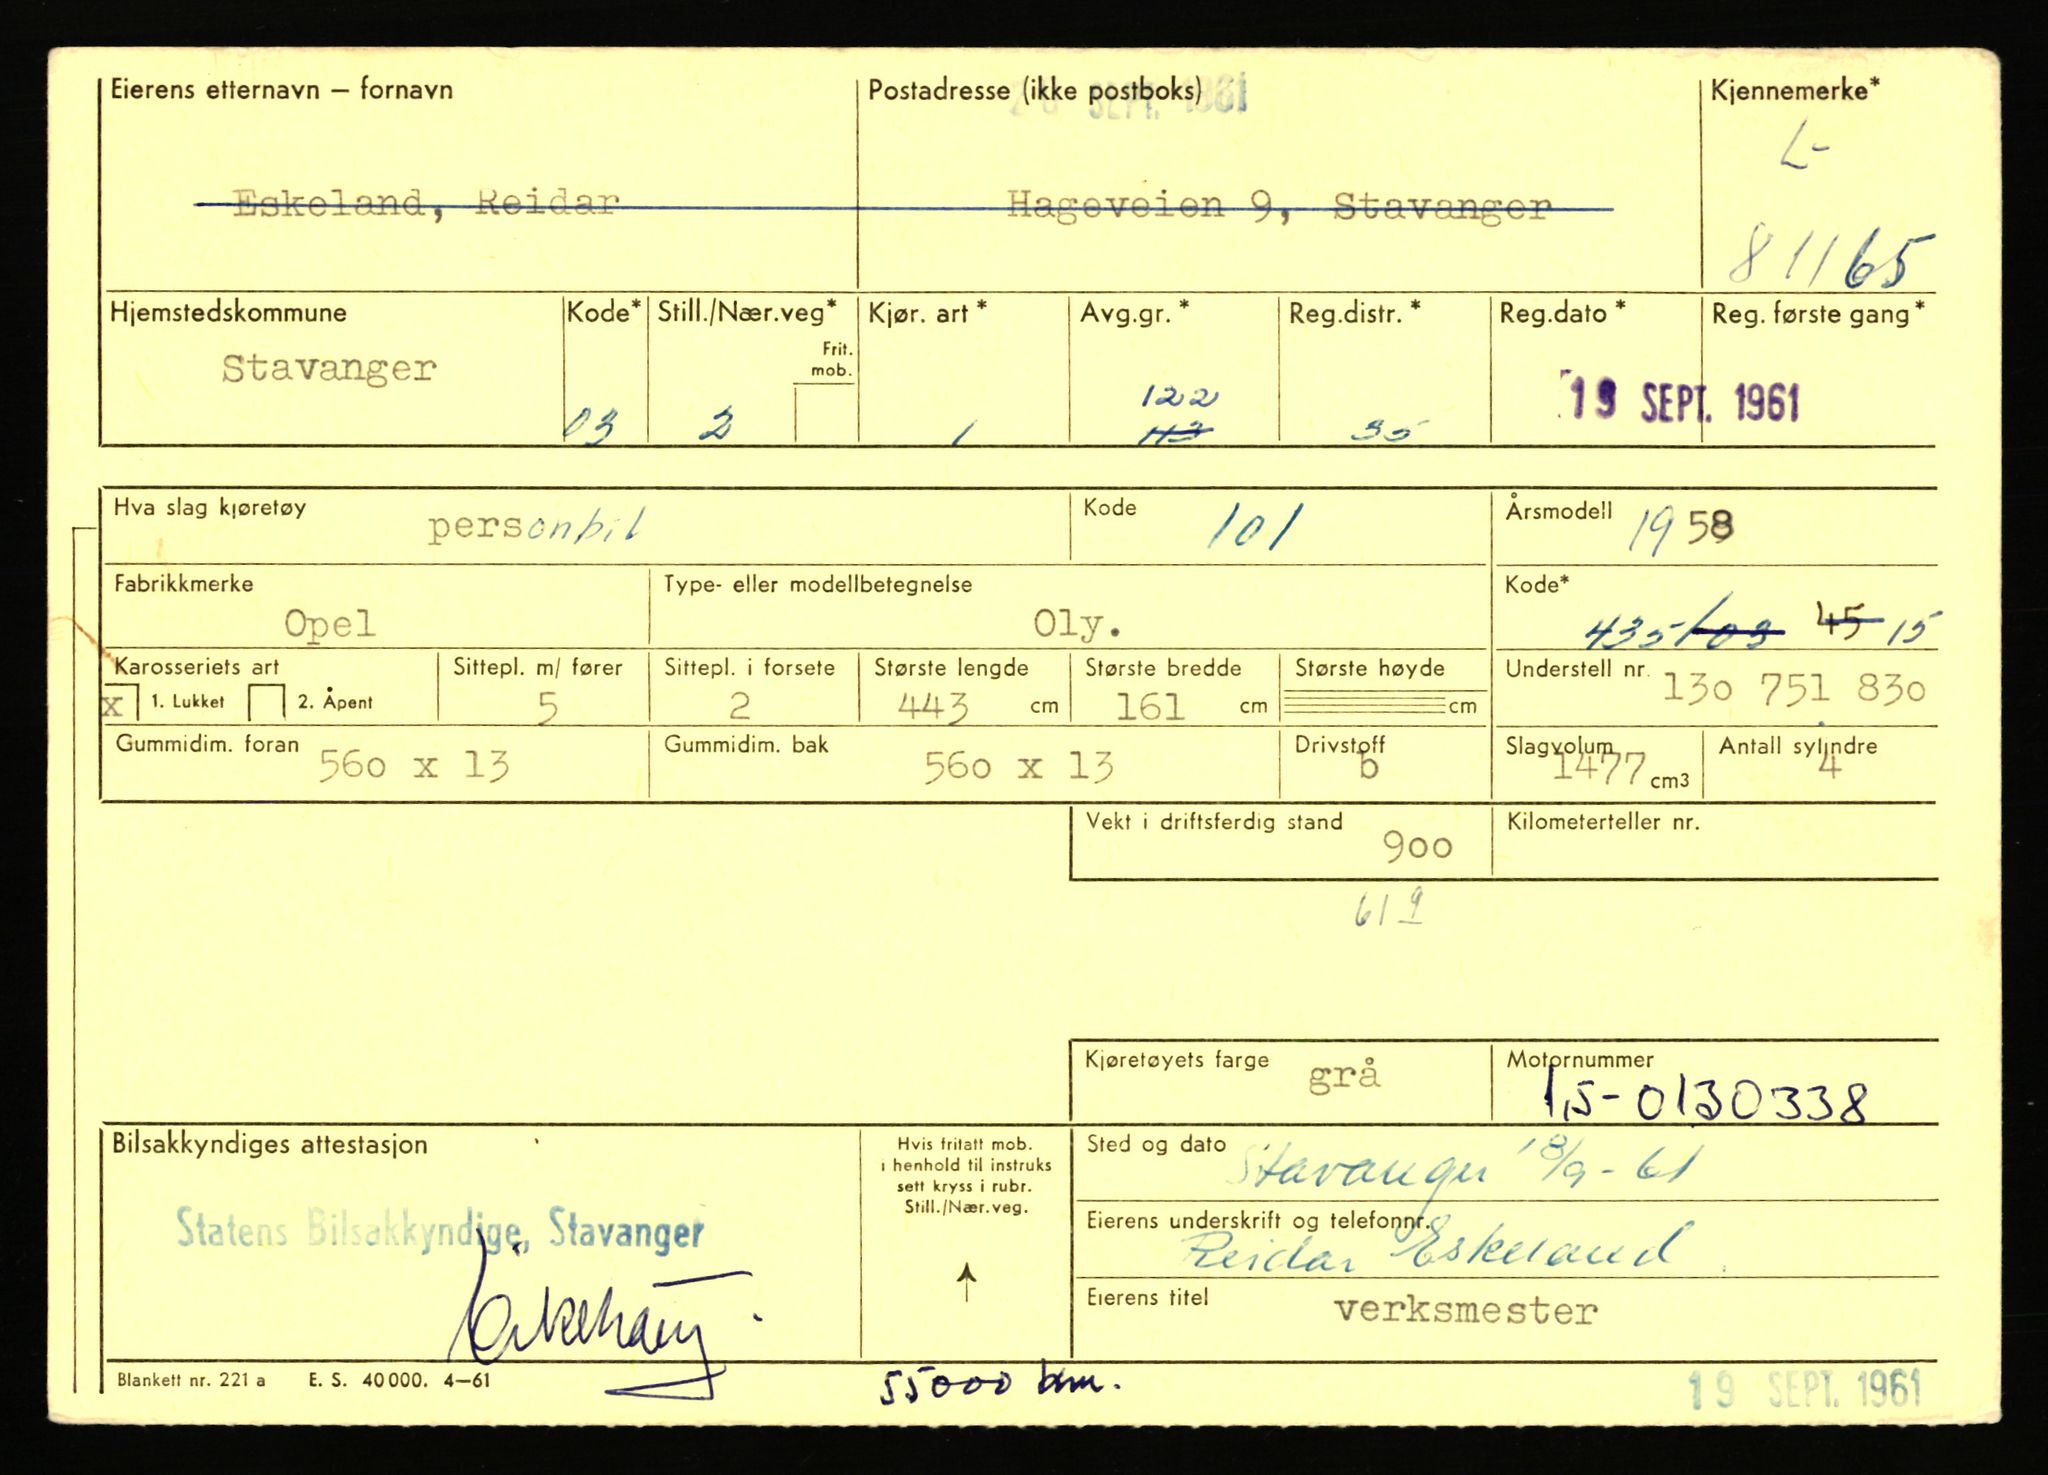 Eierens etternavn – fornavn Postadresse (ikke postboks) Kjennemerke*
SEPT. 1961
L-
Eskeland, Reidar Hageveien 9, Stavanger
81165
Hjemstedskommune Kode* Still./Nær.veg* Kjør. art* Avg.gr.* Reg.distr.* Reg.dato* Reg. første gang*
Frit. mob.
Stavanger 03 2 1 122 113 35 19 SEPT. 1961
Hva slag kjøretøy personbil Kode 101 Årsmodell 1958
Fabrikkmerke Type- eller modellbetegnelse Kode*
Opel Oly. 435/103 45 15
Karosseriets art Sittepl. m/ fører Sittepl. i forsete Største lengde Største bredde Største høyde Understell nr.
x 1. Lukket 2. Åpent 5 2 443 cm 161 cm cm 130 751 830
Gummidim. foran 560 x 13 Gummidim. bak 560 x 13 Drivstoff b Slagvolum 1477 cm3 Antall sylindre 4
Vekt i driftsferdig stand 900 Kilometerteller nr.
61 9
Kjøretøyets farge grå Motornummer
1,5-0130338
Bilsakkyndiges attestasjon
Hvis fritatt mob.
i henhold til instruks
sett kryss i rubr.
Still./Nær.veg.
Sted og dato Stavanger 18/9-61
Statens Bilsakkyndige, Stavanger
Eierens underskrift og telefonnr.
Reidar Eskeland
Eierens titel verksmester
Blankett nr. 221 a E. S. 40 000. 4–61
55000 km.
19 SEPT. 1961